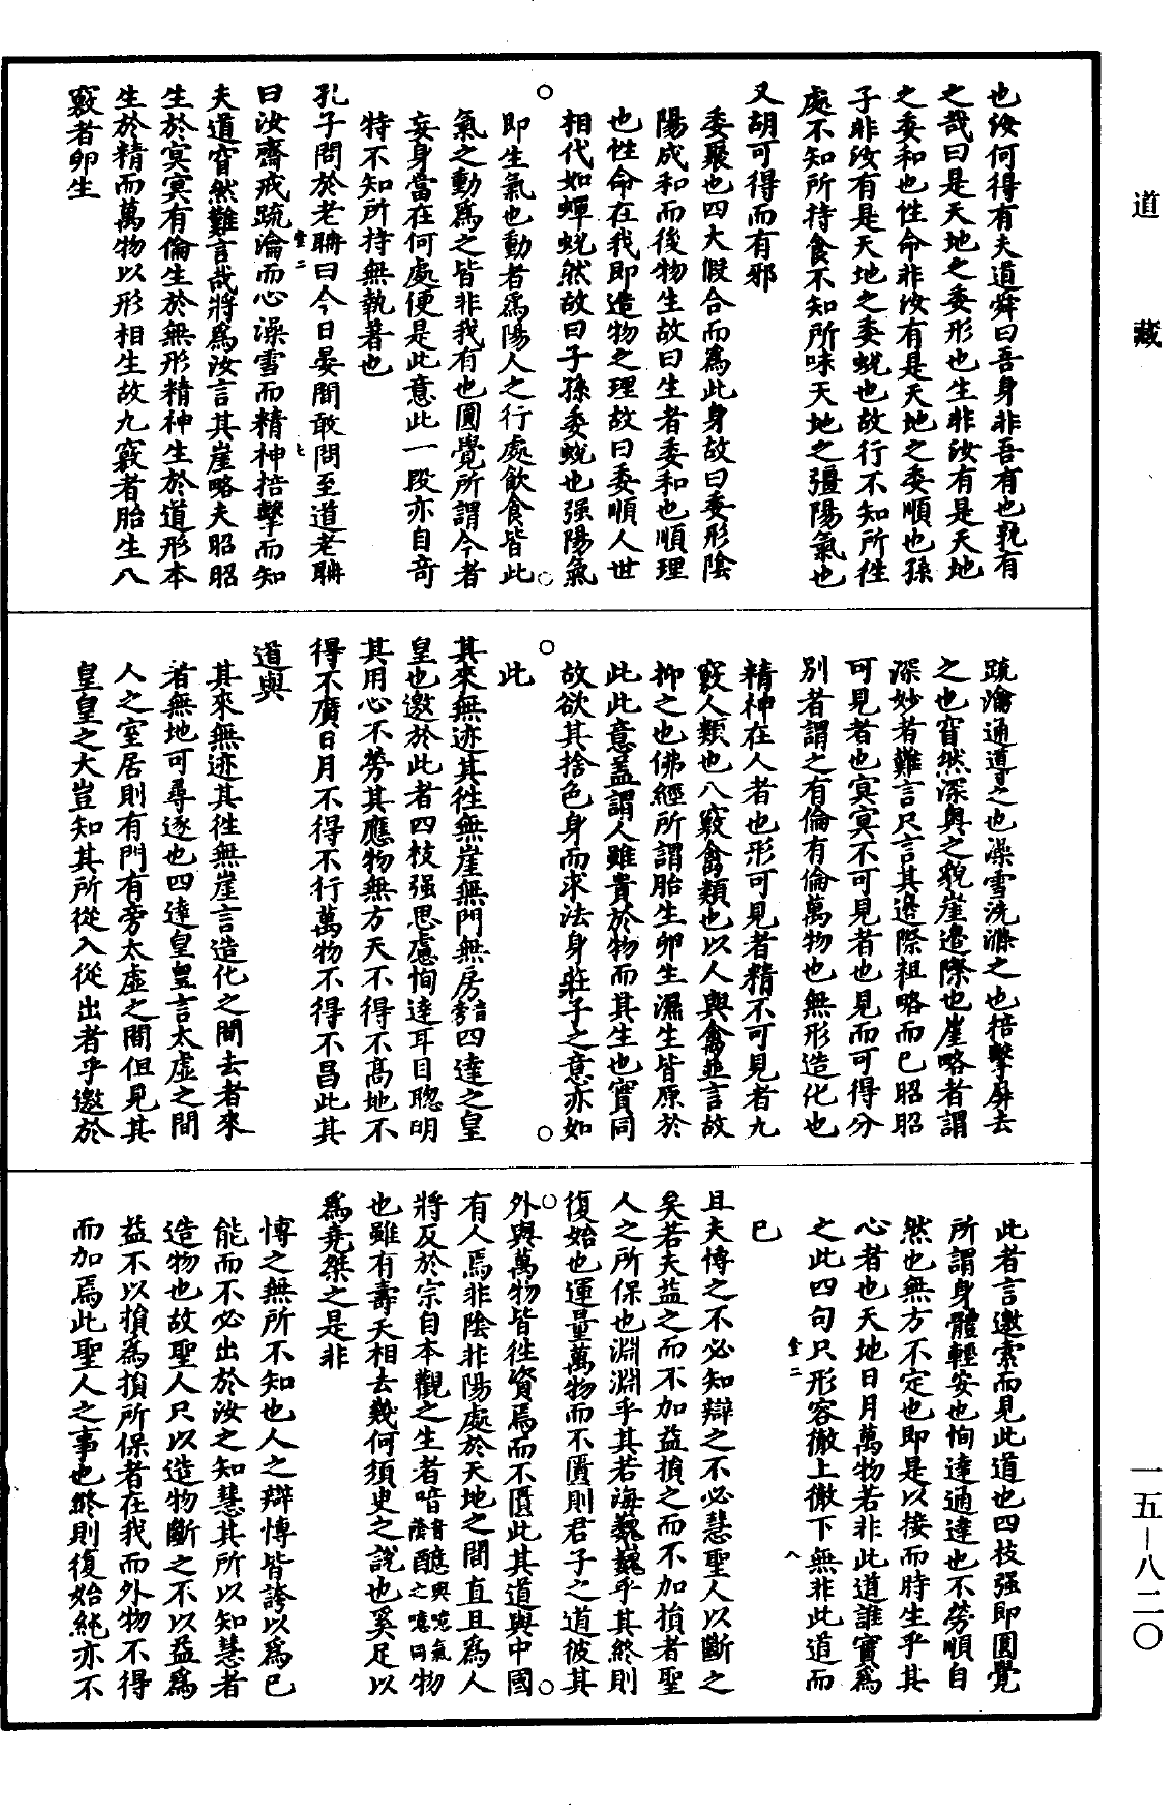 道藏
也汝何得有夫道舜曰吾身非吾有也孰有
之哉曰是天地之委形也生非汝有是天地
之委和也性命非汝有是天地之委順也孫
子非汝有是天地之委蛻也故行不知所往
處不知所持食不知所味天地之彊陽氣也
又胡可得而有邪
委聚也四大假合而為此身故曰委形陰
陽成和而後物生故曰生者委和也順理
也性命在我即造物之理故曰委順人世
相代如蟬蛻然故曰子孫委蛻也强陽氣
即生氣也動者為陽人之行處飲食皆此
氣之動為之皆非我有也圓覺所謂今者
妄身當在何處便是此意此一段亦自奇
特不知所持無執著也
孔子問於老聃曰今日晏閒敢問至道老聃
曰汝齋戒疏瀹而心澡雪而精神掊擊而知
夫道窅然難言哉將為汝言其崖略夫昭昭
生於冥冥有倫生於無形精神生於道形本
生於精而萬物以形相生故九竅者胎生八
竅者卵生
疏瀹通導之也澡雪洗滌之也掊擊屏去
之也窅然深奧之貌崖邊際也崖略者謂
深妙者難言只言其邊際粗略而已昭昭
可見者也冥冥不可見者也見而可得分
別者謂之有倫有倫萬物也無形造化也
精神在人者也形可見者精不可見者九
竅人類也八竅禽類也以人與禽並言故
抑之也佛經所謂胎生卵生濕生皆原於
此此意蓋謂人雖貴於物而其生也實同
故欲其捨色身而求法身莊子之意亦如
此
其來無迹其往無崖無門無房音旁四達之皇
皇也邀於此者四枝强思慮恂達耳目聰明
其用心不勞其應物無方天不得不高地不
得不廣日月不得不行萬物不得不昌此其
道與
其來無迹其往無崖言造化之間去者來
者無地可尋逐也四達皇皇言太虛之間
人之室居則有門有旁太虛之間但見其
皇皇之大豈知其所從入從出者乎邀於
此者言邀索而見此道也四枝强即圓覺
所謂身體輕安也恂達通達也不勞順自
然也無方不定也即是以接而時生乎其
心者也天地日月萬物若非此道誰實為
之此四句只形容徹上徹下無非此道而
已
且夫博之不必知辯之不必慧聖人以斷之
矣若夫益之而不加益損之而不加損者聖
人之所保也淵淵乎其若海巍巍乎其終則
復始也運量萬物而不匱則君子之道彼其
外與萬物皆往資焉而不匱此其道與中國
有人焉非陰非陽處於天地之間直且為人
將反於宗自本觀之生者喑音蔭醷與噫氣之噫同物
也雖有壽夭相去幾何須臾之說也奚足以
為堯桀之是非
博之無所不知也人之辯博皆誇以為己
能而不必出於汝之知慧其所以知慧者
造物也故聖人只以造物斷之不以益為
益不以損為損所保者在我而外物不得
而加焉此聖人之事也終則復始純亦不
一五－八二〇